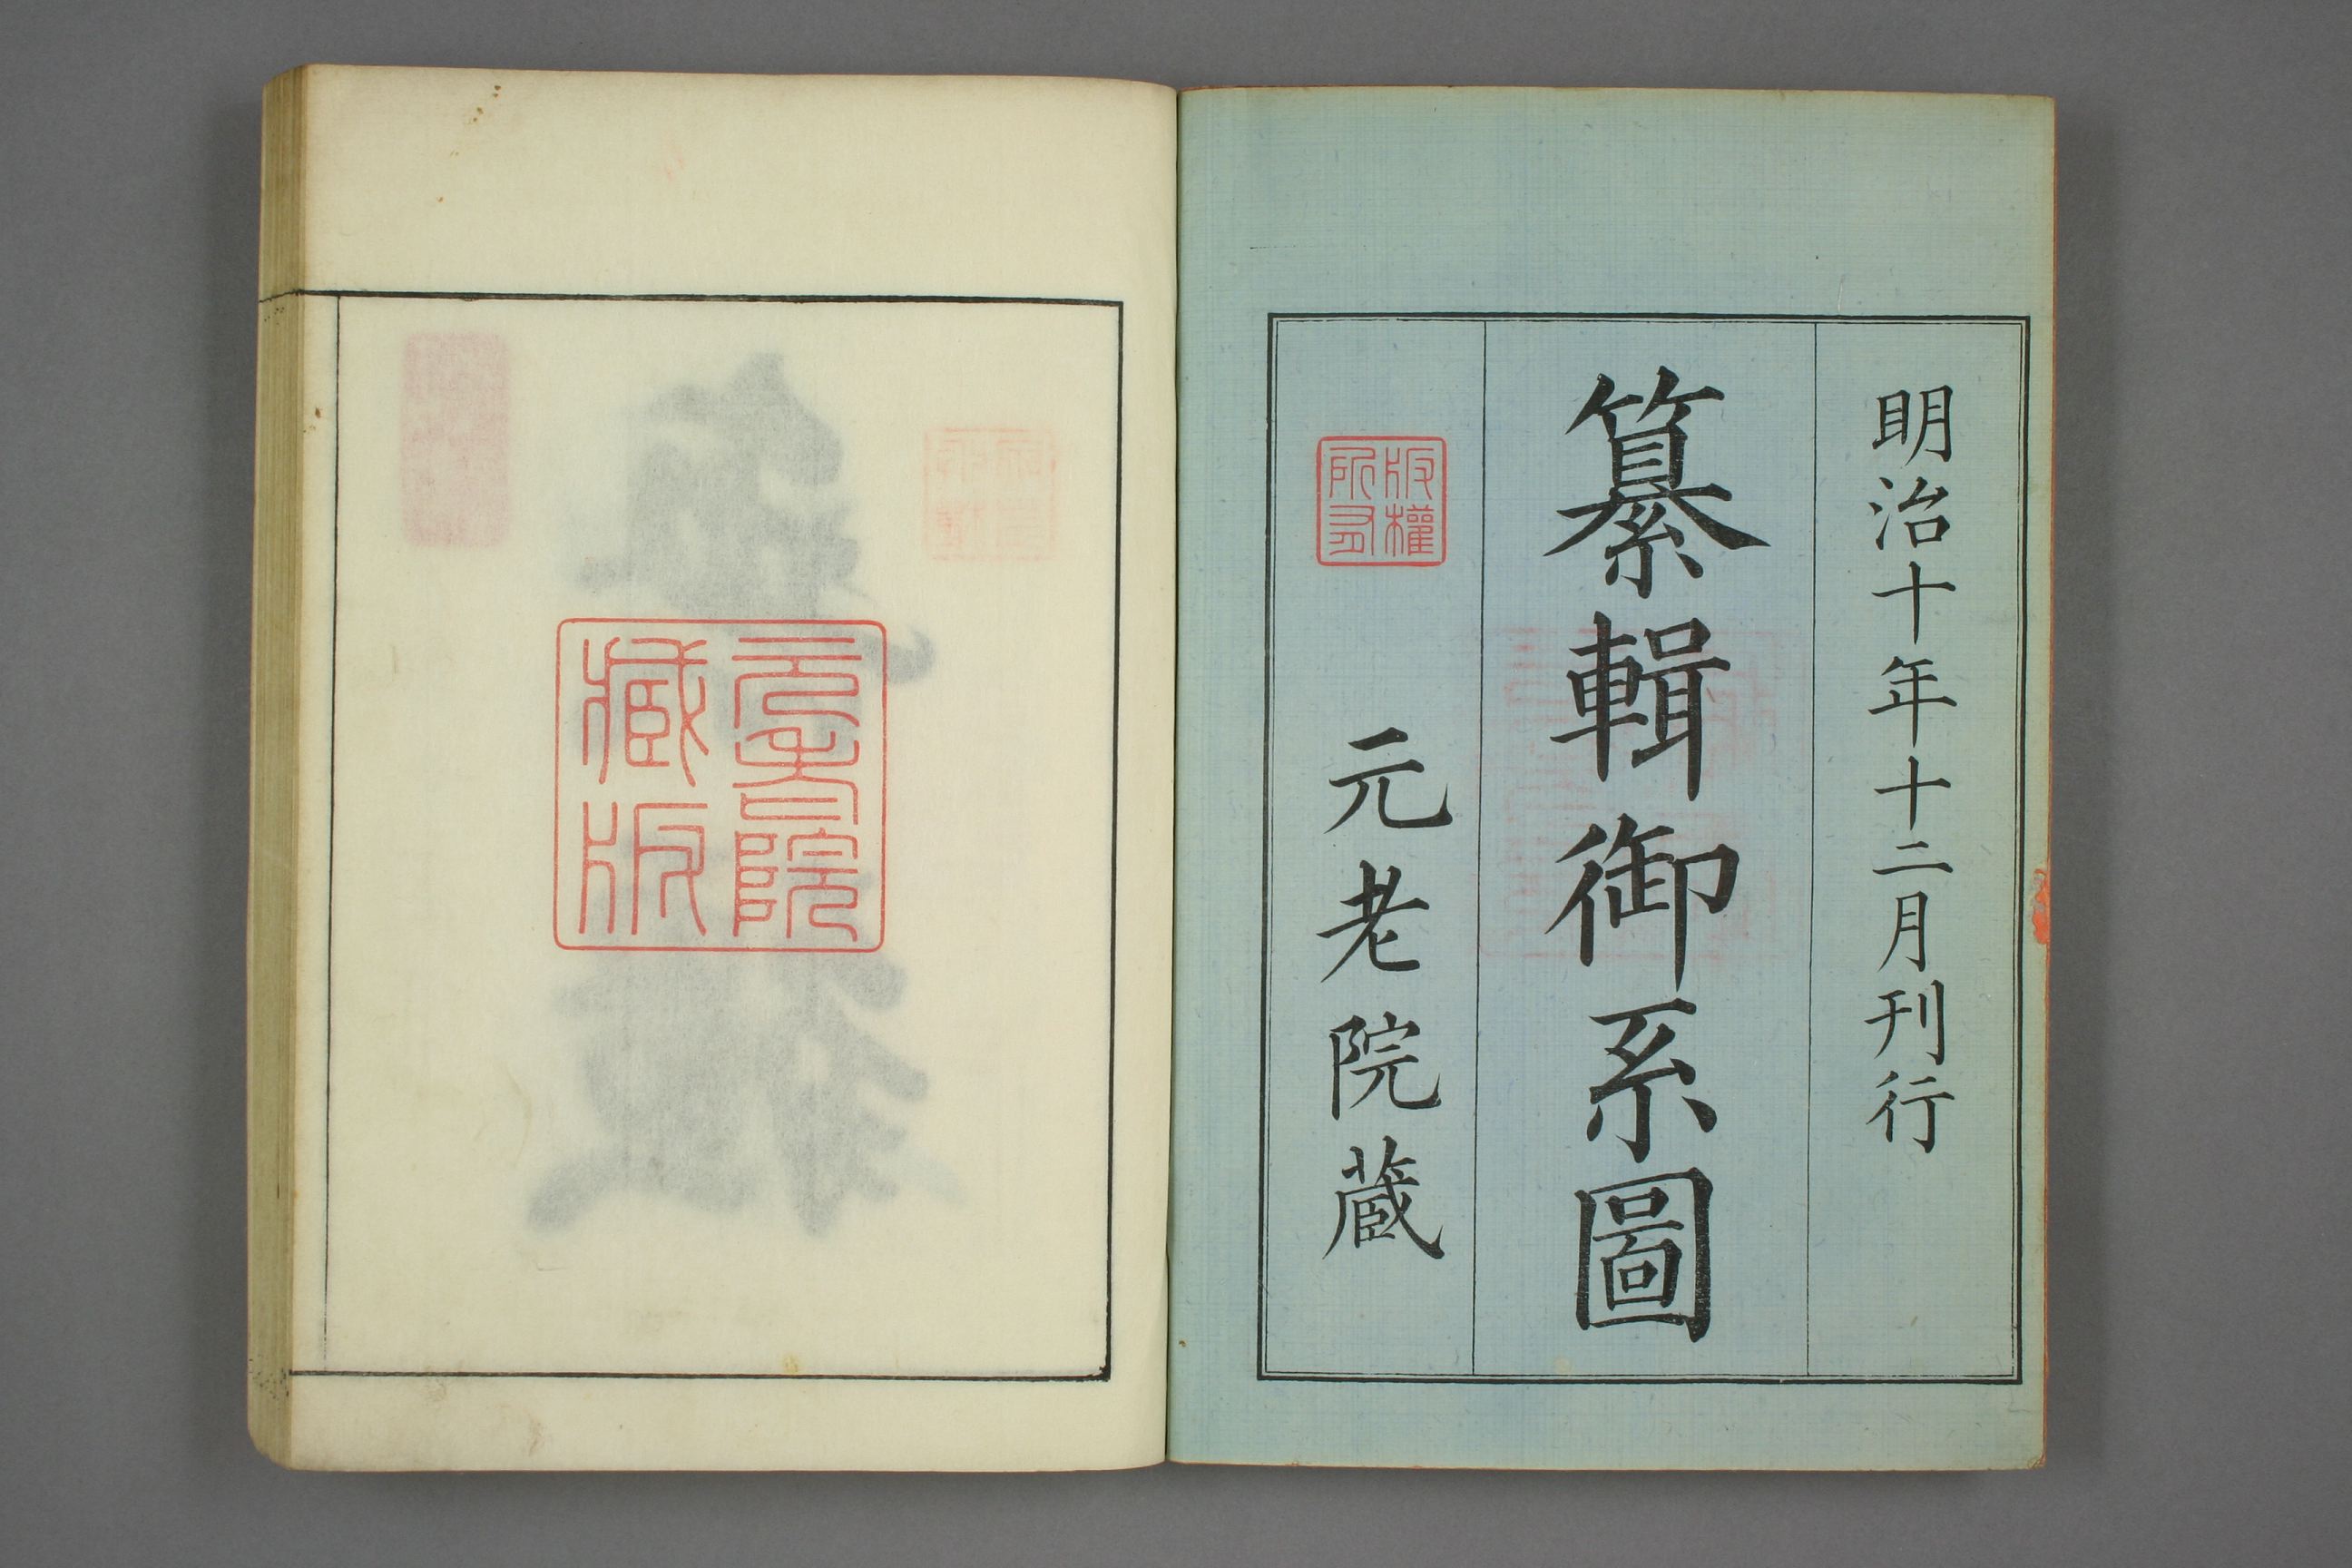 明治十年十二月刊行
纂輯御系圖
版權所有
元老院蔵
元老院藏版